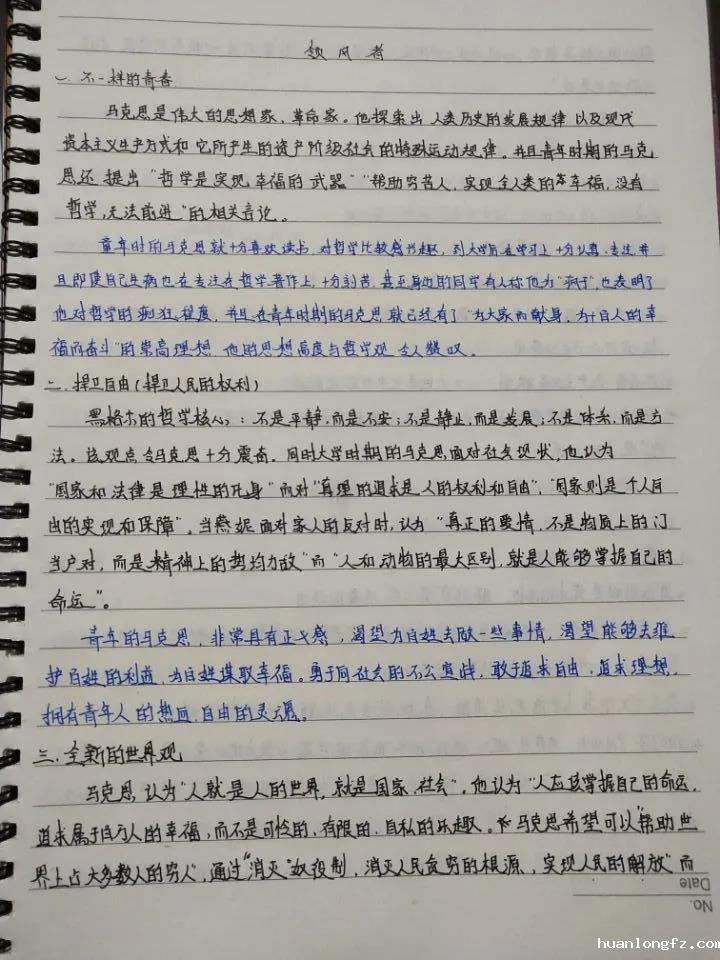 领风者
一、不一样的青春
马克思是伟大的思想家、革命家。他探索出人类历史的发展规律以及现代
资本主义生产方式和它所产生的资产阶级社会的特殊运动规律。并且青年时期的马克
思还提出“哲学是实现幸福的武器”“帮助穷苦人,实现全人类的幸福,没有
哲学,无法前进”的相关言论。
童年时的马克思就十分喜欢读书,对哲学比较感兴趣,到大学后在学习上十分认真、专注,并
且即使自己生病也在专注在哲学著作上,十分刻苦,甚至身边的同学有人称他为“疯子”,也表明了
他对哲学的痴狂程度,并且在青年时期的马克思就已经有了“为大家而献身,为千百人的幸
福而奋斗”的崇高理想,他的思想高度与哲学观令人赞叹。
二、捍卫自由(捍卫人民的权利)
黑格尔的哲学核心:不是平静,而是不安;不是静止,而是发展;不是体系,而是方
法。该观点令马克思十分震奋。同时大学时期的马克思面对社会现状,他认为
“国家和法律是理性的化身”而对“真理的追求是人的权利和自由”,“国家则是个人自
由的实现和保障”。当燕妮面对家人的反对时,认为“真正的爱情,不是物质上的门
当户对,而是精神上的势均力敌”而“人和动物的最大区别,就是人能够掌握自己的
命运”。
青年的马克思,非常具有正义感,渴望为百姓去做一些事情,渴望能够去维
护百姓的利益,为百姓谋取幸福。勇于向社会的不公宣战,敢于追求自由,追求理想,
拥有青年人的热血,自由的灵魂。
三、全新的世界观
马克思认为“人就是人的世界,就是国家,社会”。他认为“人应该掌握自己的命运,
追求属于自为人的幸福,而不是可怜的,有限的,自私的乐趣。马克思希望可以“帮助世
界上占大多数人的穷人”,通过“消灭”奴役制,消灭人民贫穷的根源,实现人民的解放”而
Date
No.
huanlongfz.com